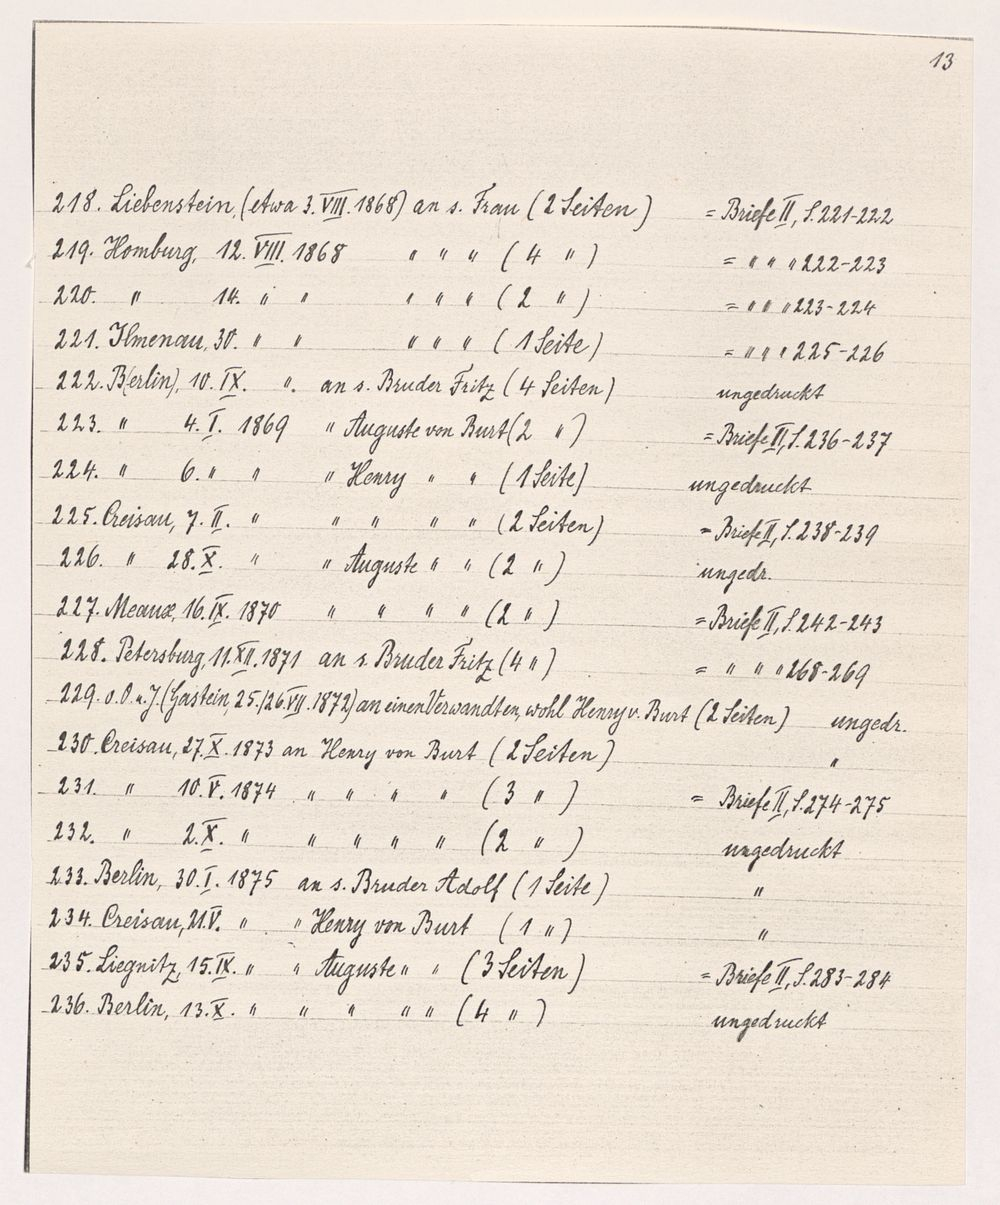 13
218. Liebenstein, (etwa 3. VIII. 1868) an s. Frau (2 Seiten) = Briefe II, S. 221-222
219. Homburg, 12. VIII. 1868 " " " (4 ") = " " " 222-223
220. " 14. " " " " " (2 ") = " " " 223-224
221. Ilmenau, 30. " " " " " (1 Seite) = " " " 225-226
222. B(erlin), 10. IX. ". an s. Bruder Fritz (4 Seiten) ungedruckt
223. " 4. I. 1869 " Auguste von Burt (2 ") = Briefe II, S. 236-237
224. " 6. " " " Henry " " (1 Seite) ungedruckt
225. Creisau, 7. II. " " " " " (2 Seiten) = Briefe II, S. 238-239
226. " 28. X. " " Auguste " " (2 ") ungedr.
227. Meaux, 16. IX. 1870 " " " " (2 ") = Briefe II, S. 242-243
228. Petersburg, 11. XII. 1871 an s. Bruder Fritz (4 ") = " " " 268-269
229. o. O. u. J. (Gastein, 25./26. VII. 1872) an einen Verwandten, wohl Henry v. Burt (2 Seiten) ungedr.
230. Creisau, 27. X. 1873 an Henry von Burt (2 Seiten) "
231. " 10. V. 1874 " " " " (3 ") = Briefe II, S. 274-275
232. " 2. X. " " " " " (2 ") ungedruckt
233. Berlin, 30. I. 1875 an s. Bruder Adolf (1 Seite) "
234. Creisau, 21. V. " " Henry von Burt (1 ") "
235. Liegnitz, 15. IX. " " Auguste " " (3 Seiten) = Briefe II, S. 283-284
236. Berlin, 13. X. " " " " " (4 ") ungedruckt